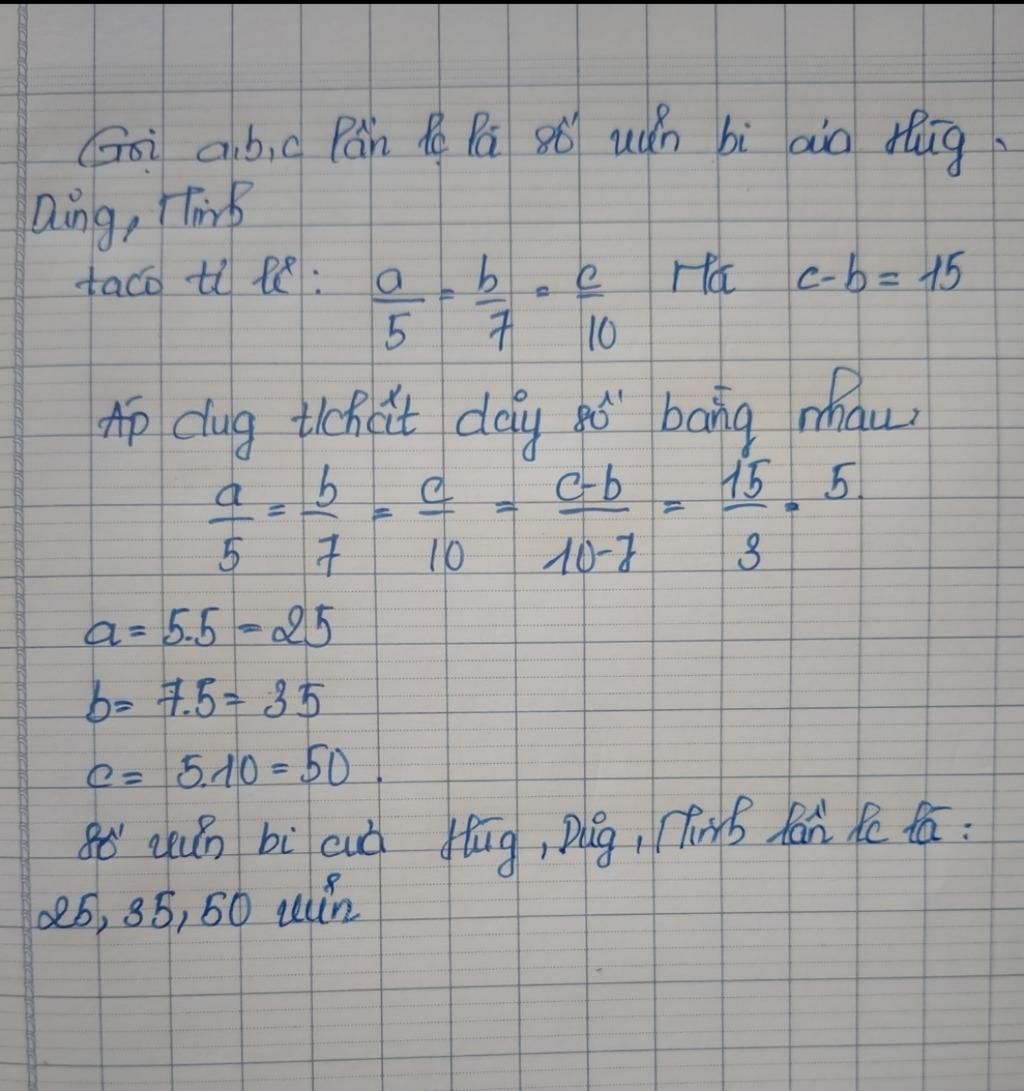 Gọi a,b,c lần lượt là số viên bi của Hùg,
Dũng, Minh
ta có tỉ lệ: a/5 = b/7 = c/10 Mà c-b = 15
Áp dụg t/chất dãy số bằng nhau
a/5 = b/7 = c/10 = c-b/10-7 = 15/3 = 5.
a = 5.5 = 25
b = 7.5 = 35
c = 5.10 = 50.
Số viên bi của Hùg, Dũg, Minh lần lượt là:
25, 35, 50 viên